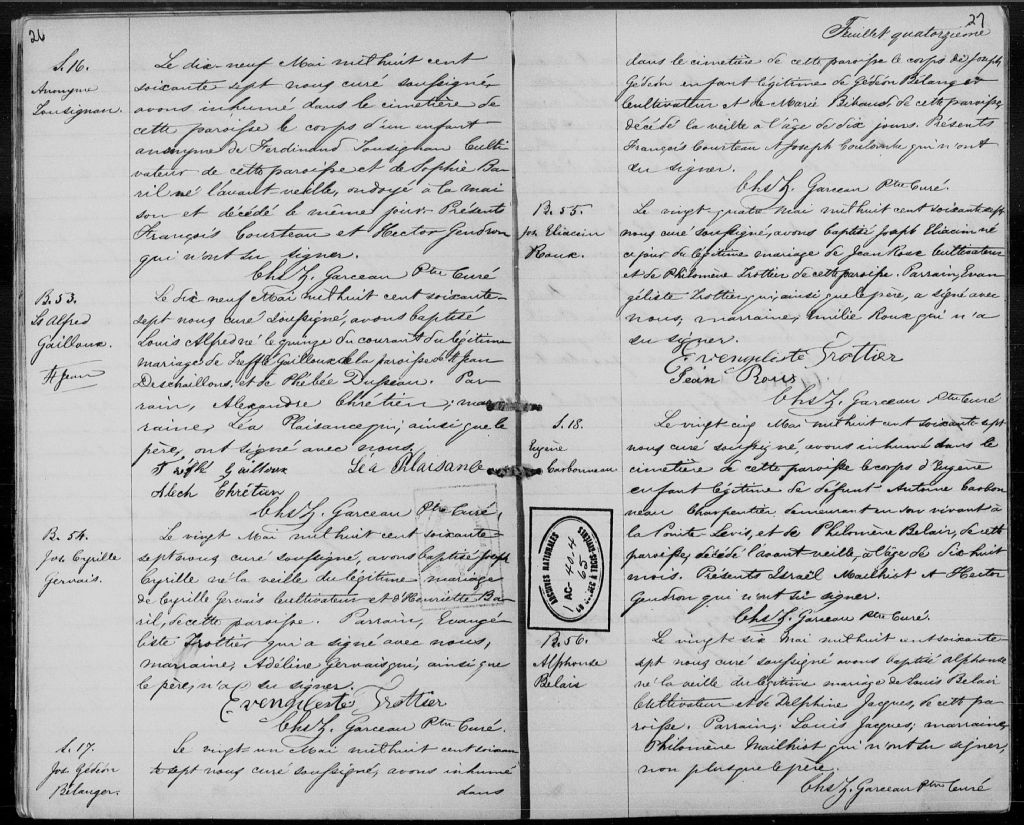 26
S. 16.
Anonyme
Tousignan.
Le dix-neuf Mai mil huit cent
soixante sept nous curé soussigné,
avons inhumé dans le cimetière de
cette paroisse le corps d'un enfant
anonyme de Ferdinand Tousignan Culti-
vateur de cette paroisse et de Sophie Ba-
ril né l'avant-veille, ondoyé à la mai
son et décédé le même jour. Présents
François Courteau et Hector Gendron
qui n'ont su signer.
Chs Z. Garceau Ptre Curé
B. 53.
Ls Alfred
Gailloux.
St Jean
Le dix neuf Mai mil huit cent soixante-
sept nous curé soussigné, avons baptisé
Louis Alfred né le quinze du courant du légitime
mariage de Trefflé Gailloux de la paroisse de St Jean
Deschaillons, et de Phébée Dussau. Par-
rain, Alexandre Chrétien; mar
raine, Léa Plaisance qui, ainsi que le
père, ont signé avec nous.
Tréfflé Gailloux Léa Plaisance
Alech Chrétien
Chs Z. Garceau Ptre Curé.
B. 54.
Jos. Cyrille
Gervais.
Le vingt Mai mil huit cent soixante-
sept nous curé soussigné, avons baptisé Joseph
Cyrille né la veille du légitime mariage
de Cyrille Gervais Cultivateur et d'Henriette Ba-
ril, de cette paroisse. Parrain, Evangé-
liste Trottier qui a signé avec nous,
marraine, Adéline Gervais qui, ainsi que
le père, n'a su signer.
Evengeliste Trottier
Chs Z. Garceau Ptre Curé.
S. 17.
Jos. Gédéon
Bélanger.
Le vingt-un Mai mil huit cent soixan
te sept nous curé soussigné, avons inhumé
dans
27
Feuillet quatorzième
dans le cimetière de cette paroisse le corps de Joseph
Gédéon enfant légitime de Gédéon Bélanger
Cultivateur et de Marie Bibaud, de cette paroisse,
décédé la veille à l'âge de dix jours. Présents
François Courteau & Joseph Coulombe qui n'ont
su signer.
Chs Z. Garceau Ptre Curé.
B. 55.
Jos. Eliacin
Roux.
Le vingt-quatre Mai mil huit cent soixante sept
nous curé soussigné, avons baptisé Joseph Eliacin né
ce jour du légitime mariage de Jean Roux Cultivateur
et de Philomène Trottier de cette paroisse. Parrain, Evan
géliste Trottier qui, ainsi que le père, a signé avec
nous, marraine, Emilie Roux qui n'a
su signer.
Evengeliste Trottier
Jean Rous
Chs Z. Garceau Ptre Curé
S. 18.
Eugène
Carbonneau
Le vingt cinq Mai mil huit cent soixante sept
nous curé soussigné, avons inhumé dans le
cimetière de cette paroisse le corps d'Eugène
enfant légitime de défunt Antoine Carbon
neau Charpentier demeurant en son vivant à
la Pointe-Levis, et de Philomène Belair, de cette
paroisse, décédé l'avant veille, à l'âge de dix huit
mois. Présents Israël Mailhiot & Hector
Gendron qui n'ont su signer.
Chs Z. Garceau Ptre Curé.
ARCHIVES NATIONALES
1 AC-404
65
B. 56.
Alphonse
Belair
Le vingt-six Mai mil huit cent soixante
sept nous curé soussigné avons baptisé Alphonse
né la veille du légitime mariage de Louis Belair
Cultivateur et de Delphine Jacques, de cette pa-
roisse. Parrain, Louis Jacques; marraine,
Philomène Mailhiot qui n'ont su signer,
non plus que le père.
Chs Z. Garceau Ptre Curé